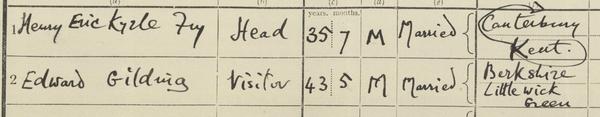 (a) (b) (c) (d) (e)
years. months.
1 Henry Eric Kyrle Fry Head 35 7 M Married { Canterbury
Kent.
2 Edward Gilding Visitor 43 5 M Married { Berkshire
Littlewick
Green